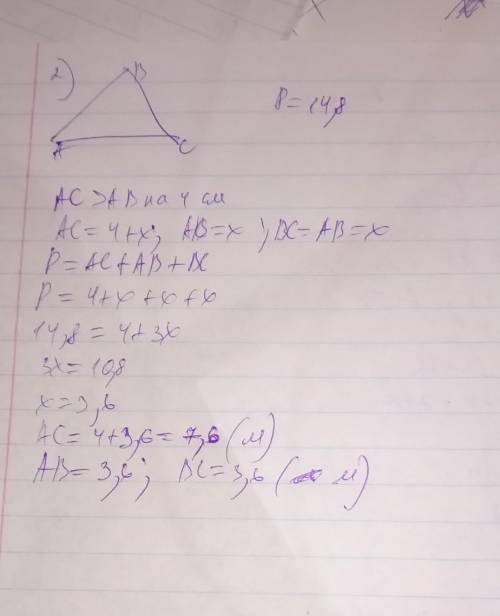 2)
B
P = 14,8
A
C
AC > AB на 4 см
AC = 4+x; AB = x; BC = AB = x
P = AC + AB + BC
P = 4 + x + x + x
14,8 = 4 + 3x
3x = 10,8
x = 3,6
AC = 4 + 3,6 = 7,6 (м)
AB = 3,6; BC = 3,6 (м)